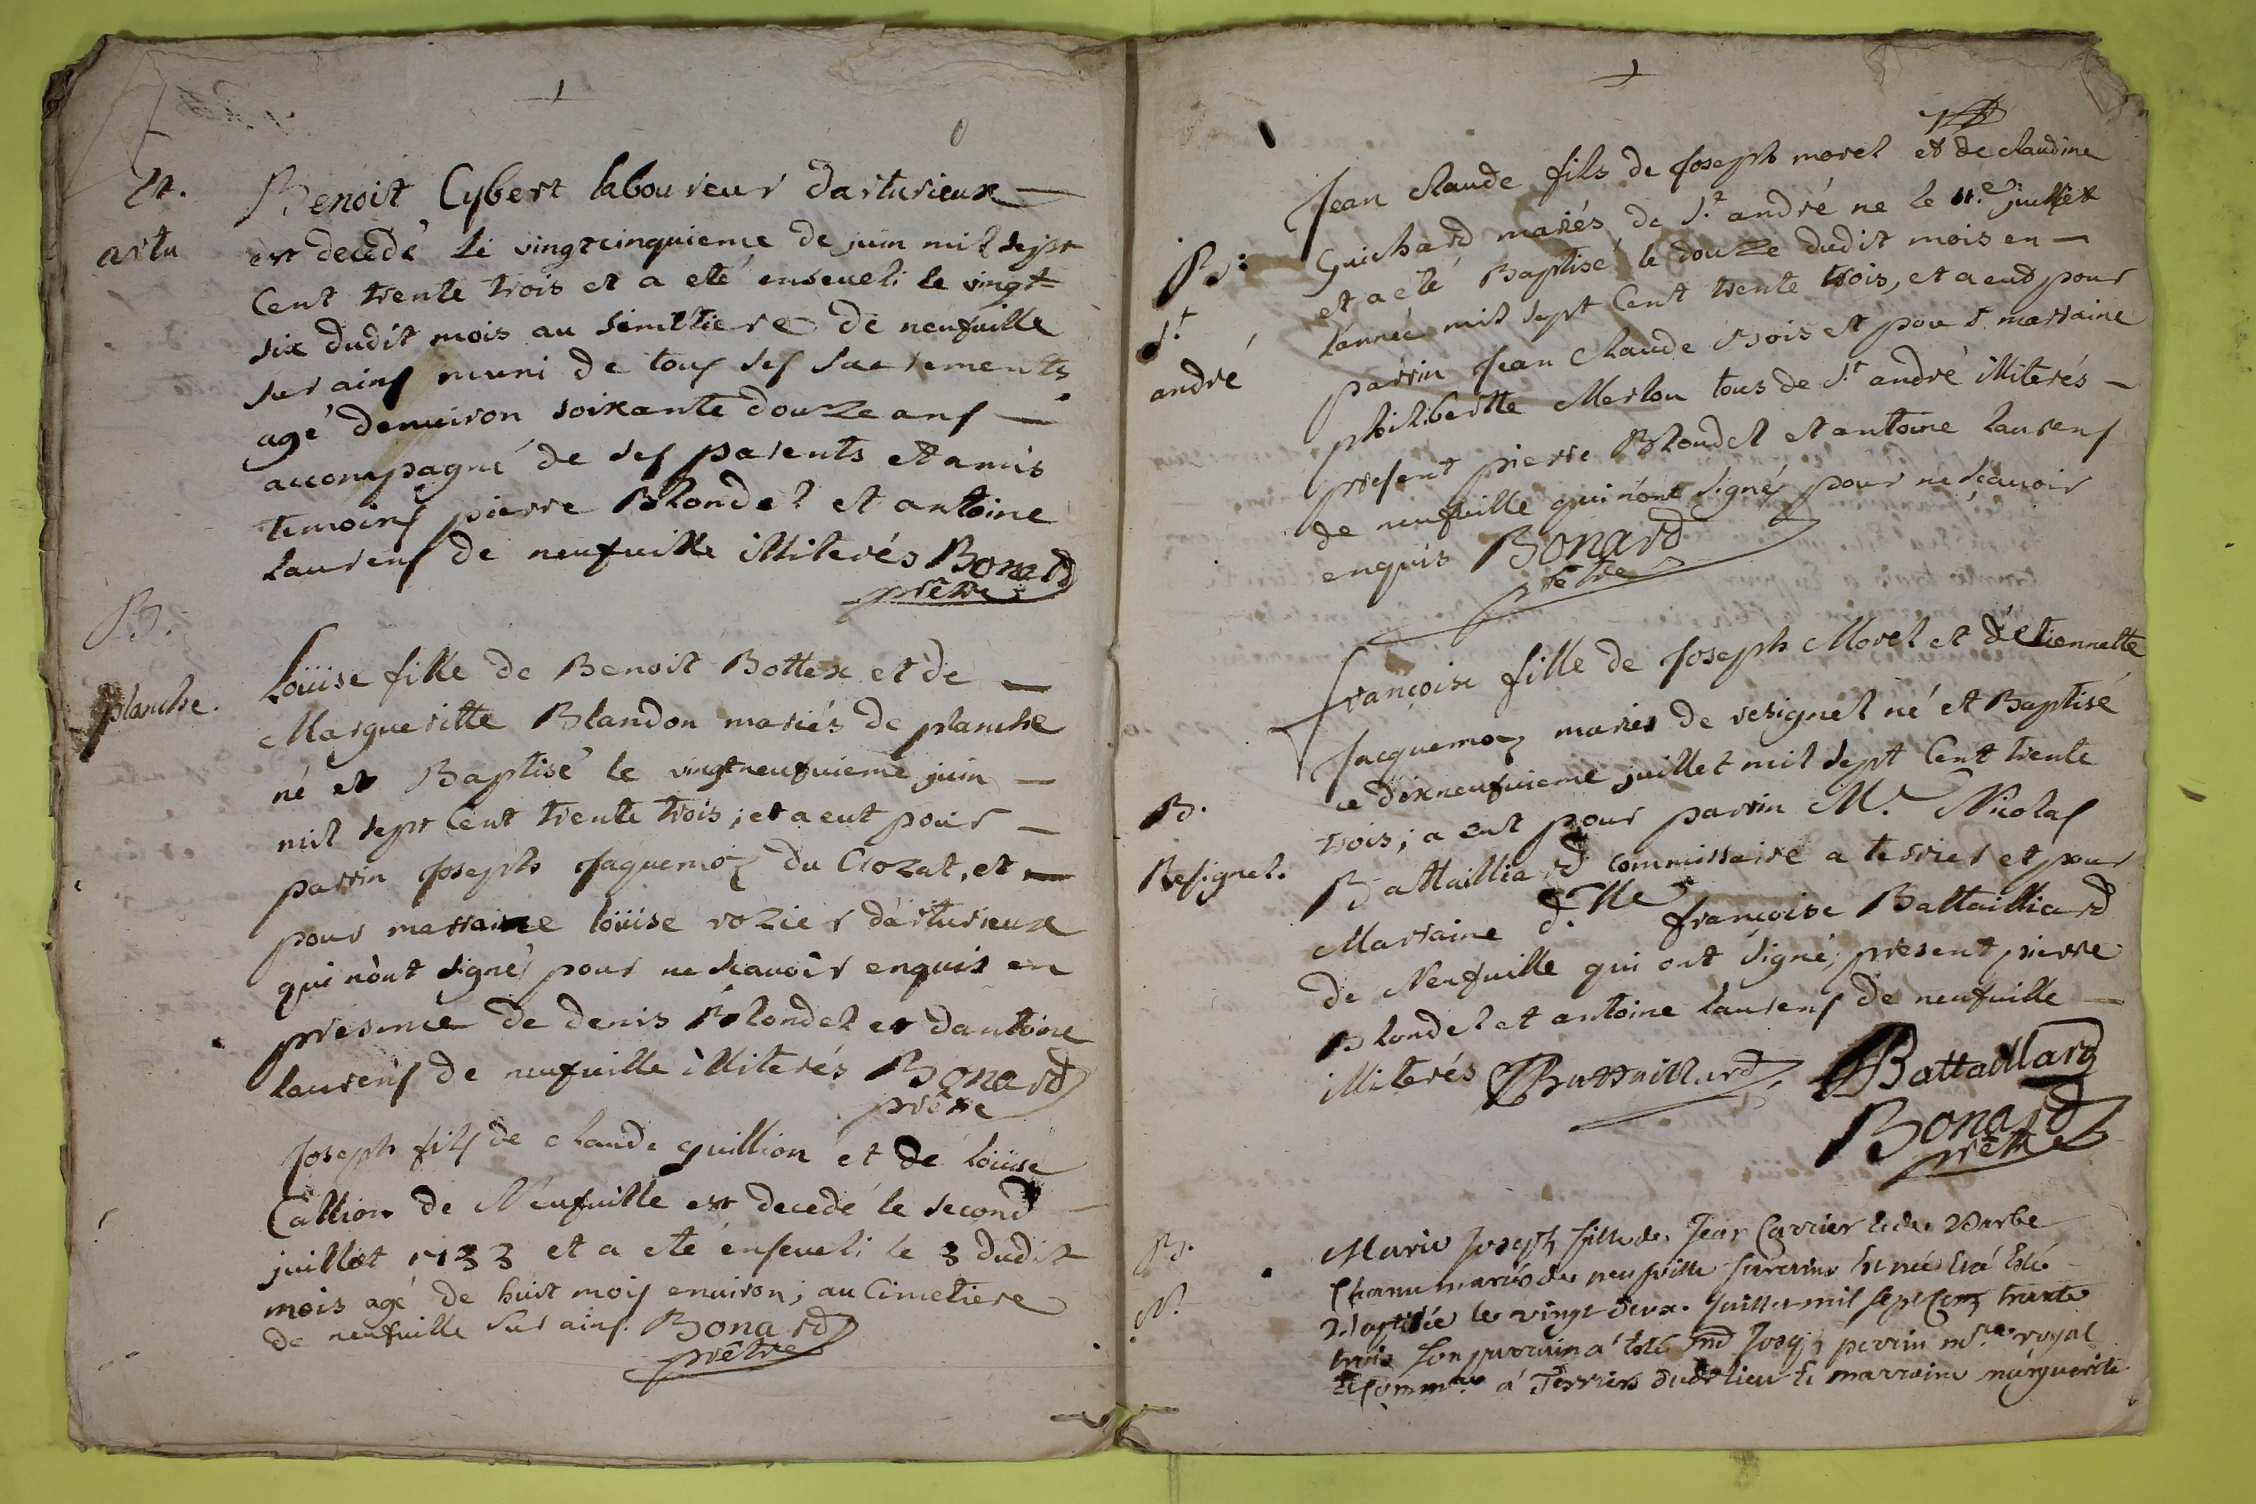 Et.
artu
Benoist Cybert laboureur darturieux
est decedé le vingtcinquieme de juin mil sept
Cent trente trois et a eté enseveli le vingt
six dudit mois au simitiere de neufuille
sur ains muni de tous ses sacrements
agé denuiron soixante douze ans
accompagné de ses parents et amis
temoins pierre Blondel et antoine
laurens de neufuille illiterés Bonard
prêtre
B.
planche.
Loüise fille de Benoist Bottex et de
Margueritte Blandon mariés de planche
né et Baptisé le vingtneufuieme juin
mil sept Cent trente trois; et a eut pour
parrin Joseph Jaquemoz du Crozat, et
pour marraine loüise rozier d'arturieux
qui n'ont signés pour ne scauoir enquis en
presence de denis Blondel et dantoine
laurens de neufuille illiterés Bonard
prêtre
Joseph fils de claude guillion et de loüise
Callion de Neufuille est decedé le second
juillet 1733 et a eté enseueli le 3 dudit
mois agé de huit mois enuiron; au Cimetiere
de neufuille sur ains. Bonard
prêtre
B:
St
andré
Jean claude fils de Joseph morel et de claudine
Guichard mariés de St andré ne le 11e juillet
et a eté Baptisé le douze dudit mois en
l'année mil sept Cent trente trois, et a eut pour
parrin Jean claude et pour marraine
philibertte Merlon tous de St andré illiterés
present pierre Blondel et antoine laurens
de neufuille qui n'ont signés pour ne sçauoir
enquis Bonard
prêtre
B.
Resignel.
françoise fille de Joseph Morel et d'etiennette
Jacquemoz mariés de resignel né et Baptisé
ce dixneufuieme juillet mil sept Cent trente
trois; a eut pour parrin Mr Nicolas
Battailliard commissaire a terrier et pour
Marraine d.lle françoise Battailliard
de Neufuille qui ont signé; present pierre
Blondel et antoine laurens de neufuille
illiterés Battaillard Battaillard
Bonard
prêtre
B.
N.
Marie Joseph fille de Jean Carrier et de Barbe
Chanu mariés de neufville sur ains est née et a esté
Baptisée le vingt deux juillet mil sept cens trente
trois son parrain a esté Joseph perrin royal
et Commre à Terriers dudt lieu et marraine marguerite